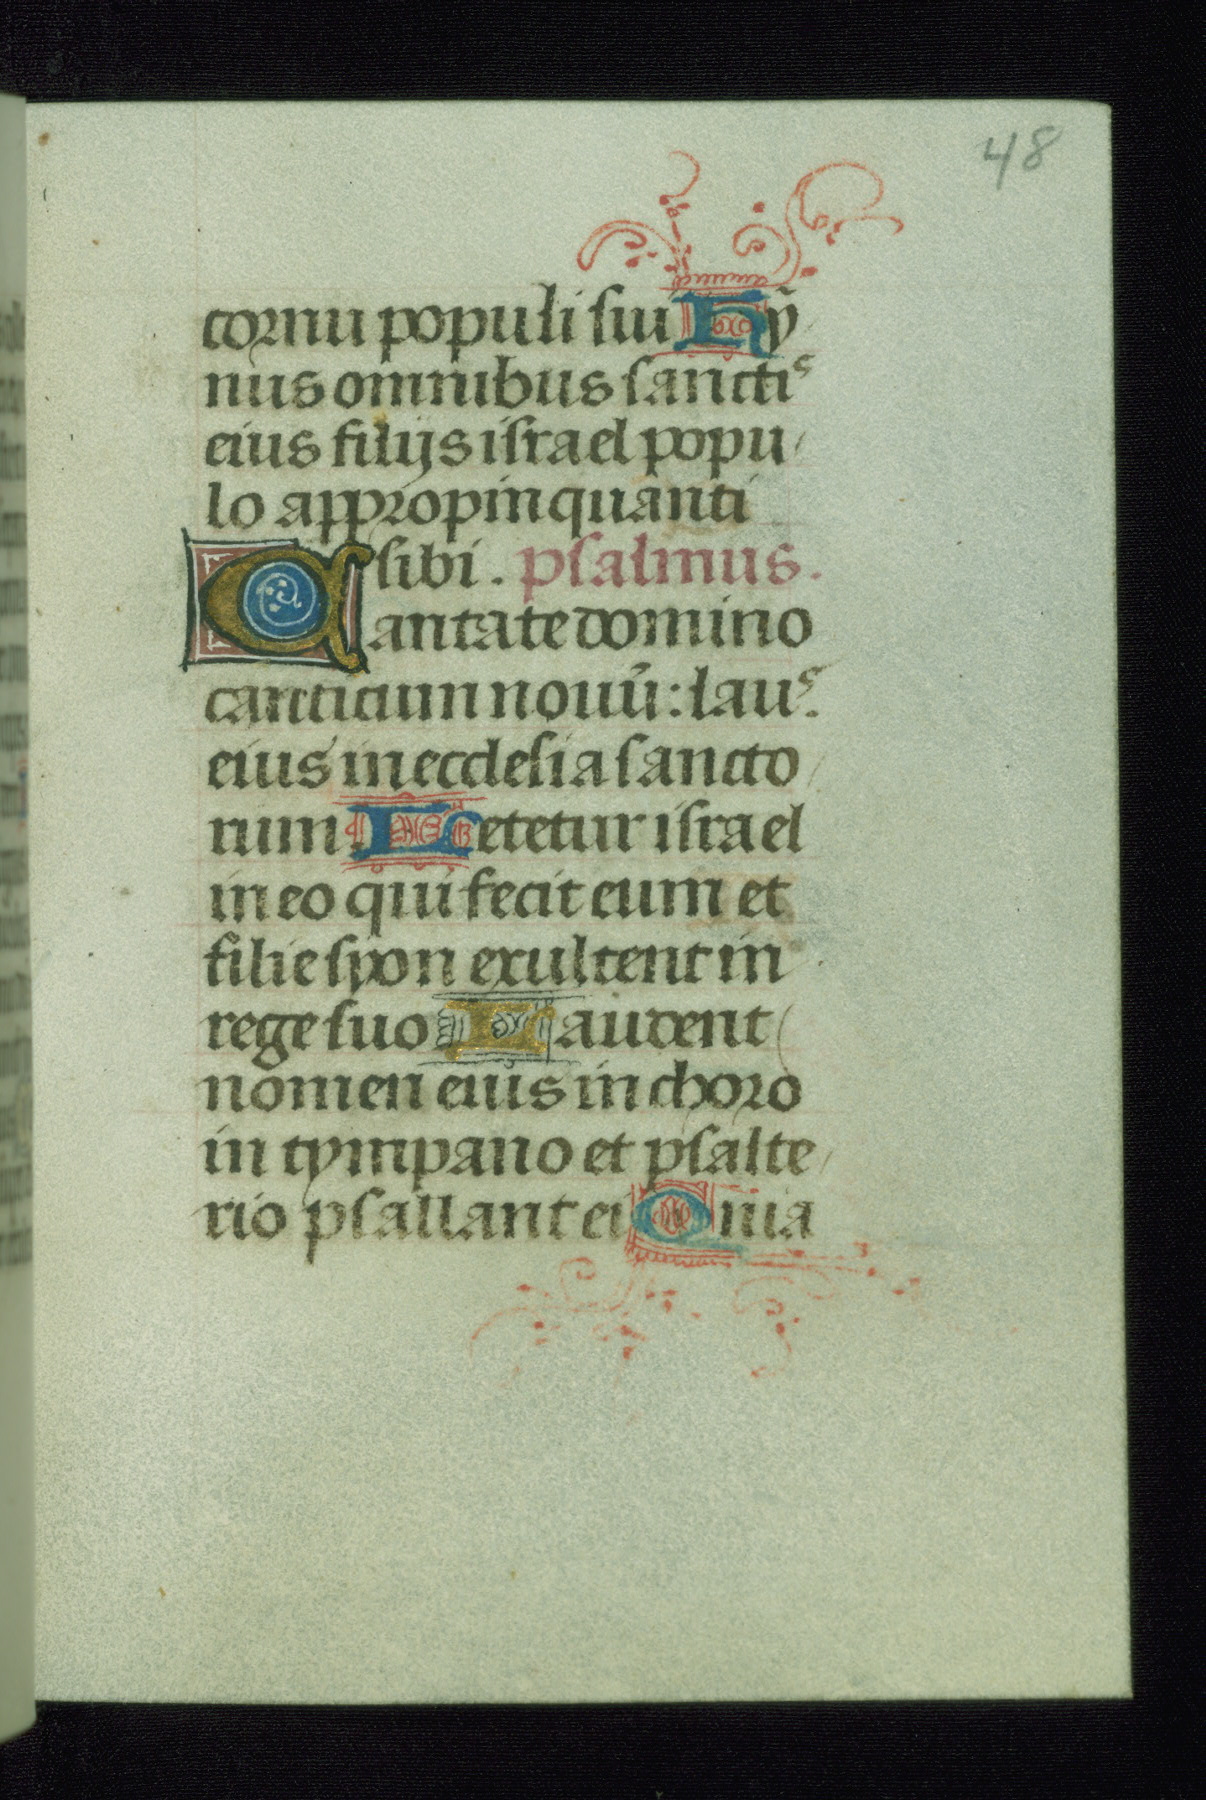 48
cornu populi sui Hỹ
nus omnibus sanctis
eius filijs israel popu
lo appropinquanti
sibi. psalmus.
Cantate domino
canticum nouū: laus.
eius in ecclesia sancto
rum Letetur israel
in eo qui fecit eum et
filie syon exultent in
rege suo Laudent
nomen eius in choro
in tympano et psalte
rio psallant ei Q̄nia